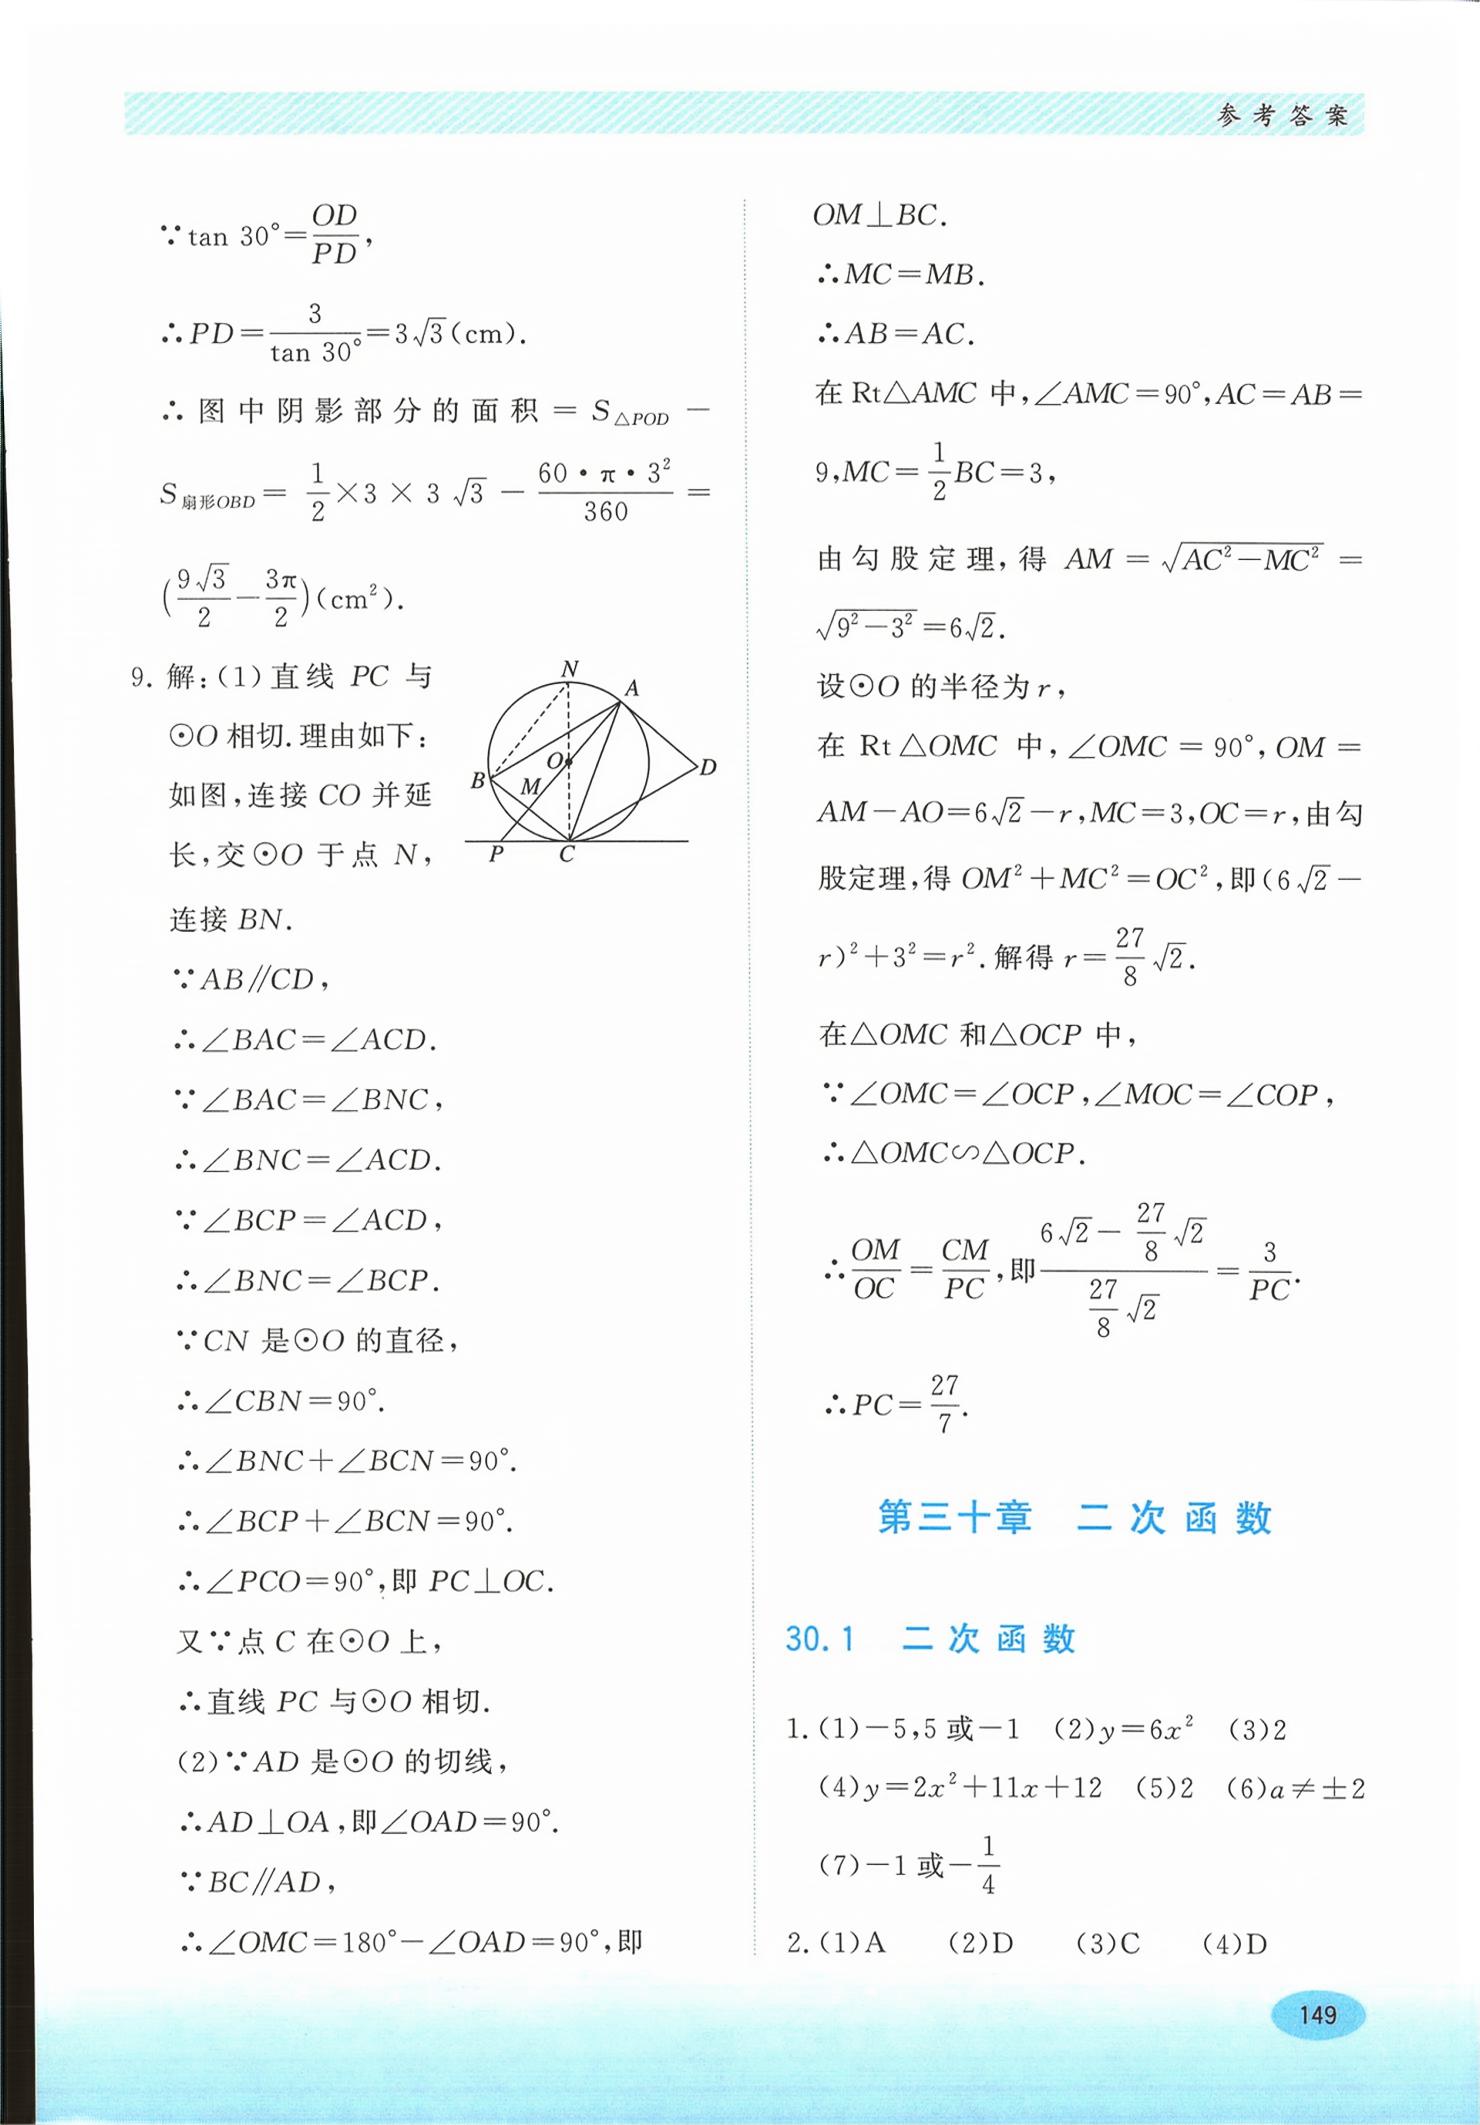 参考答案
∵tan 30°=OD/PD,
∴PD=3/tan 30°=3√3(cm).
∴图中阴影部分的面积=S△POD-
S扇形OBD=1/2×3×3√3-60·π·3²/360=
(9√3/2-3π/2)(cm²).
9. 解:(1)直线 PC 与
⊙O相切.理由如下:
如图,连接 CO 并延
长,交⊙O 于点 N,
连接 BN.
N
A
B
O
M
D
P
C
∵AB∥CD,
∴∠BAC=∠ACD.
∵∠BAC=∠BNC,
∴∠BNC=∠ACD.
∵∠BCP=∠ACD,
∴∠BNC=∠BCP.
∵CN 是⊙O 的直径,
∴∠CBN=90°.
∴∠BNC+∠BCN=90°.
∴∠BCP+∠BCN=90°.
∴∠PCO=90°,即 PC⊥OC.
又∵点 C 在⊙O 上,
∴直线 PC 与⊙O 相切.
(2)∵AD 是⊙O 的切线,
∴AD⊥OA,即∠OAD=90°.
∵BC∥AD,
∴∠OMC=180°-∠OAD=90°,即
OM⊥BC.
∴MC=MB.
∴AB=AC.
在 Rt△AMC 中,∠AMC=90°,AC=AB=
9,MC=1/2BC=3,
由勾股定理,得 AM=√(AC²-MC²)=
√(9²-3²)=6√2.
设⊙O 的半径为 r,
在 Rt△OMC 中,∠OMC=90°,OM=
AM-AO=6√2-r,MC=3,OC=r,由勾
股定理,得 OM²+MC²=OC²,即(6√2-
r)²+3²=r².解得 r=27/8√2.
在△OMC 和△OCP 中,
∵∠OMC=∠OCP,∠MOC=∠COP,
∴△OMC∽△OCP.
∴OM/OC=CM/PC,即(6√2-27/8√2)/(27/8√2)=3/PC.
∴PC=27/7.
第三十章 二次函数
30.1 二次函数
1.(1)-5,5或-1 (2)y=6x² (3)2
(4)y=2x²+11x+12 (5)2 (6)a≠±2
(7)-1或-1/4
2.(1)A (2)D (3)C (4)D
149